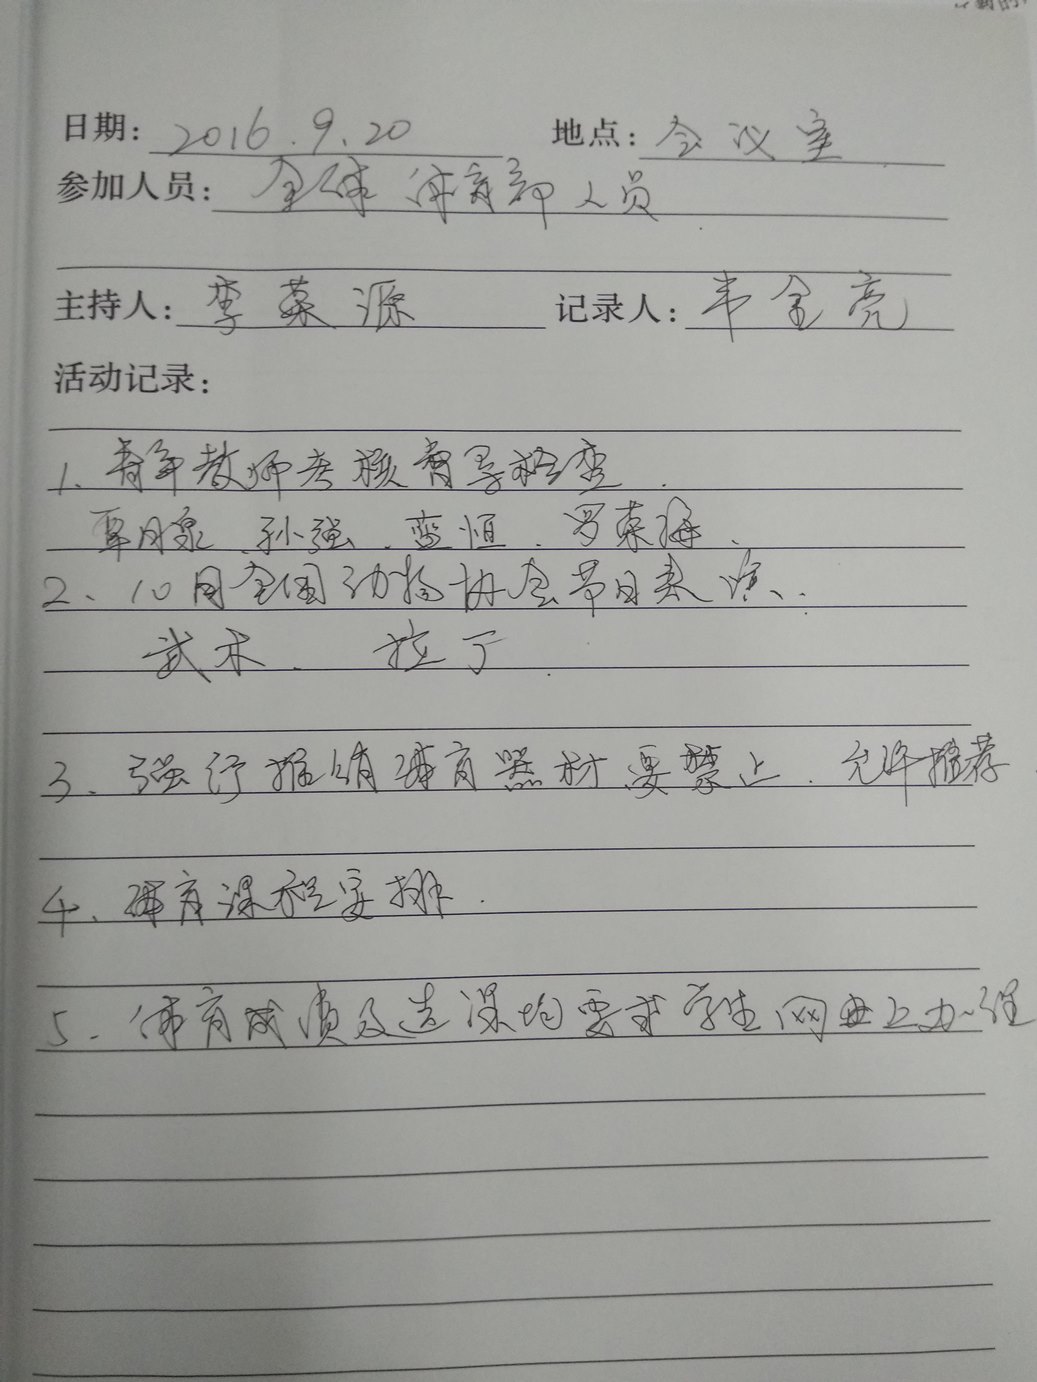 日期: 2016.9.20 地点: 会议室
参加人员: 全体体育部人员
主持人: 李菜源 记录人: 韦金亮
活动记录:
1、青年教师考核督导检查.
覃月泉、孙强、蓝恒、罗荣海、
2、10月全国动物协会节目表演、.
武术. 拉丁.
3、强行推销体育器材要禁止. 允许推荐.
4、体育课程安排.
5、体育成绩及选课均要求学生网上办理